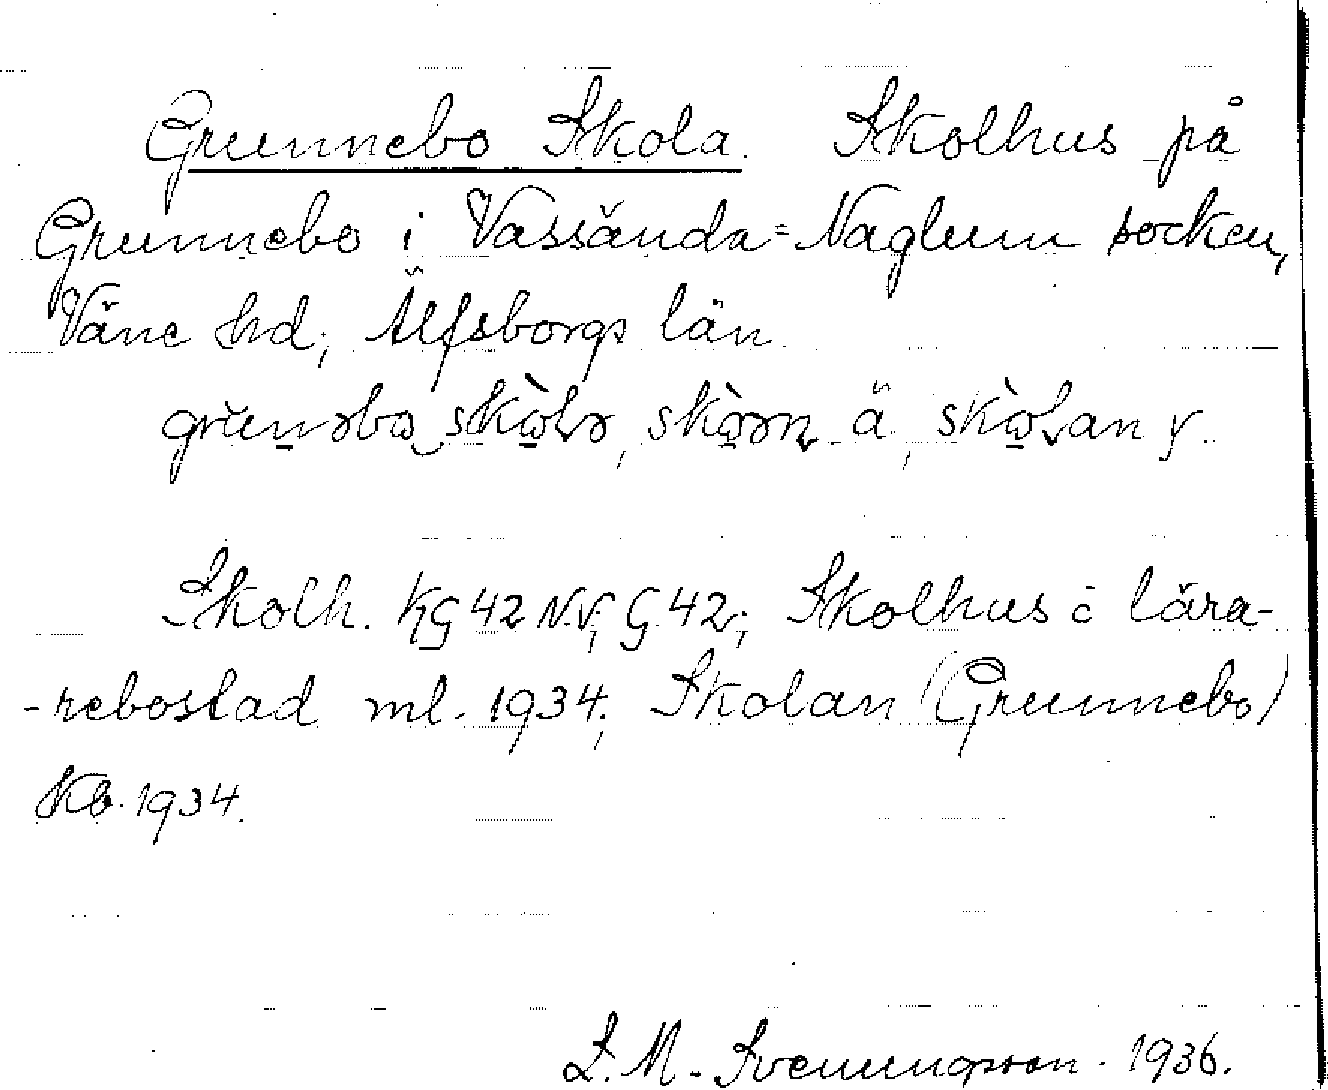 Grunnebo Skola. Skolhus på
Grunnebo i Vassända=Naglum socken,
Väne hd; Älfsborgs län
skolan y.
Skolh. KG 42 NV; G 42; Skolhus o lära-
-rebostad ml. 1934; Skolan (Grunnebo)
Kb. 1934.
S. M. Svenungsson. 1936.